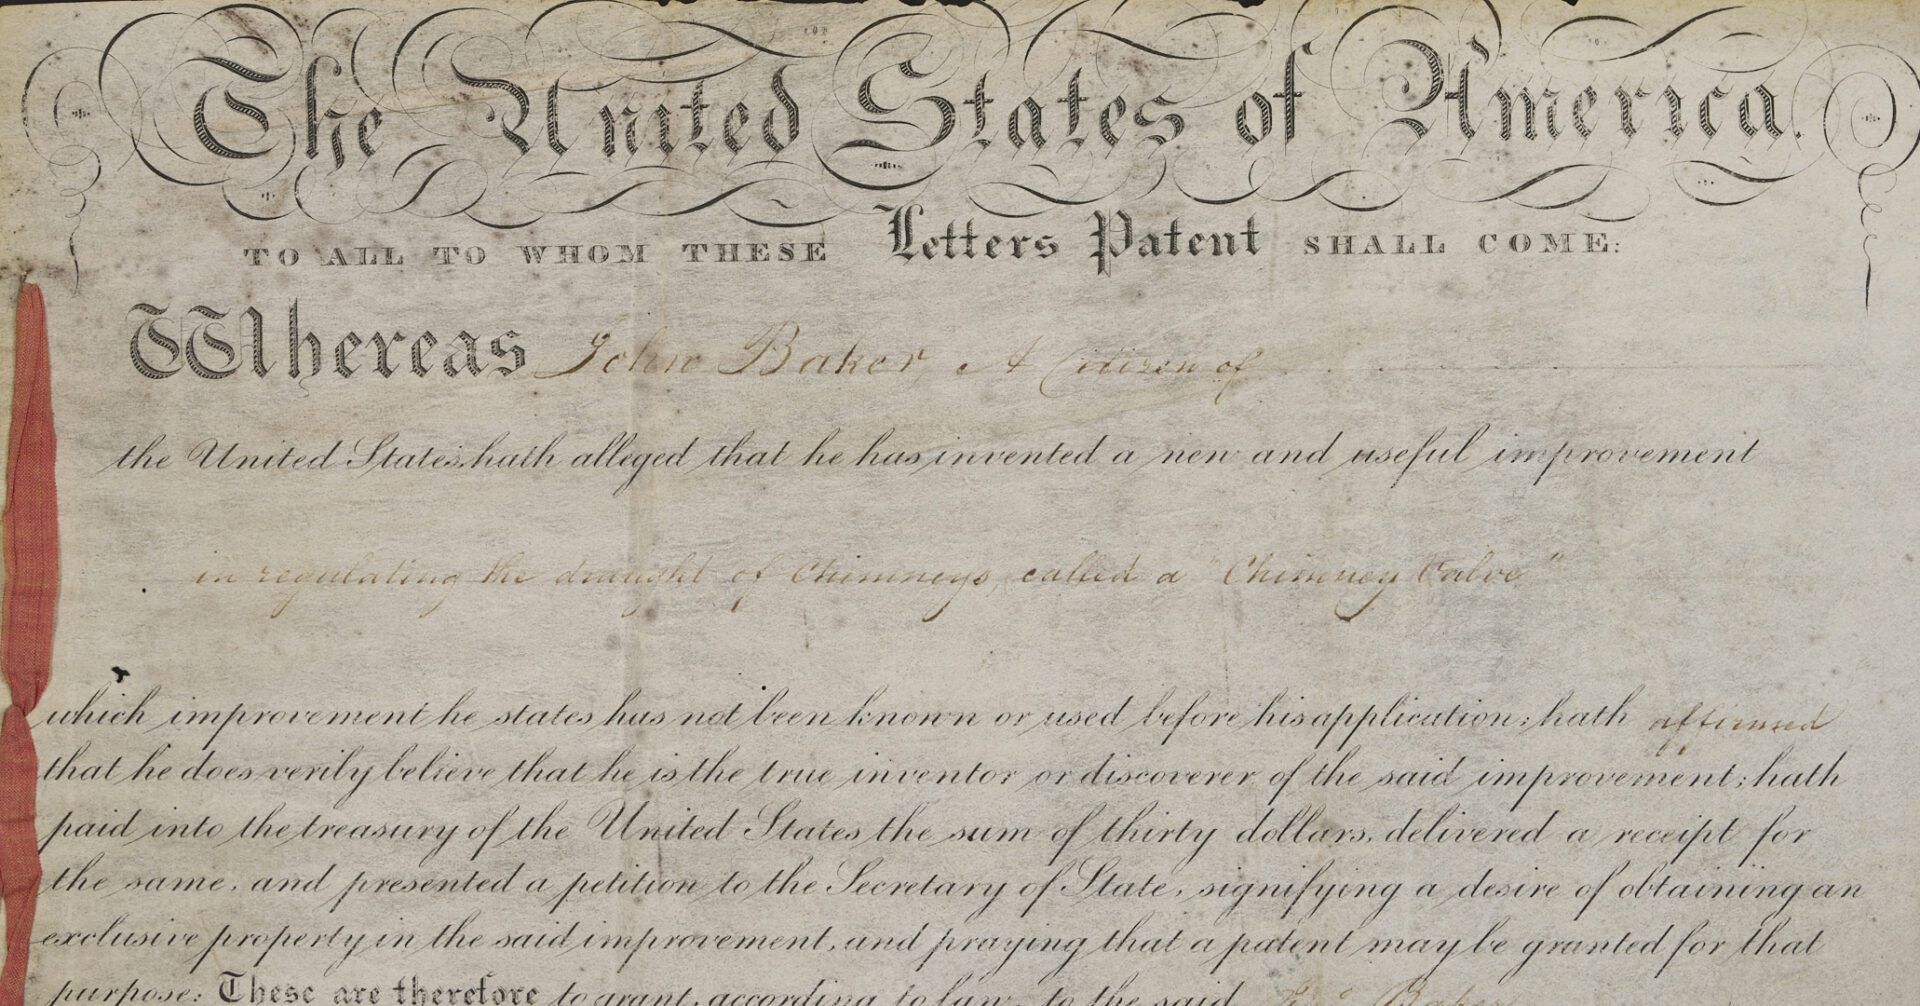 The United States of America.
TO ALL TO WHOM THESE Letters Patent SHALL COME:
Whereas John Baker, A Citizen of
the United States, hath alleged that he has invented a new and useful improvement
in regulating the draught of Chimneys, called a "Chimney Valve"
which improvement he states has not been known or used before his application; hath affirmed
that he does verily believe that he is the true inventor or discoverer of the said improvement; hath
paid into the treasury of the United States the sum of thirty dollars, delivered a receipt for
the same, and presented a petition to the Secretary of State, signifying a desire of obtaining an
exclusive property in the said improvement, and praying that a patent may be granted for that
purpose: These are therefore to grant, according to law, to the said Baker